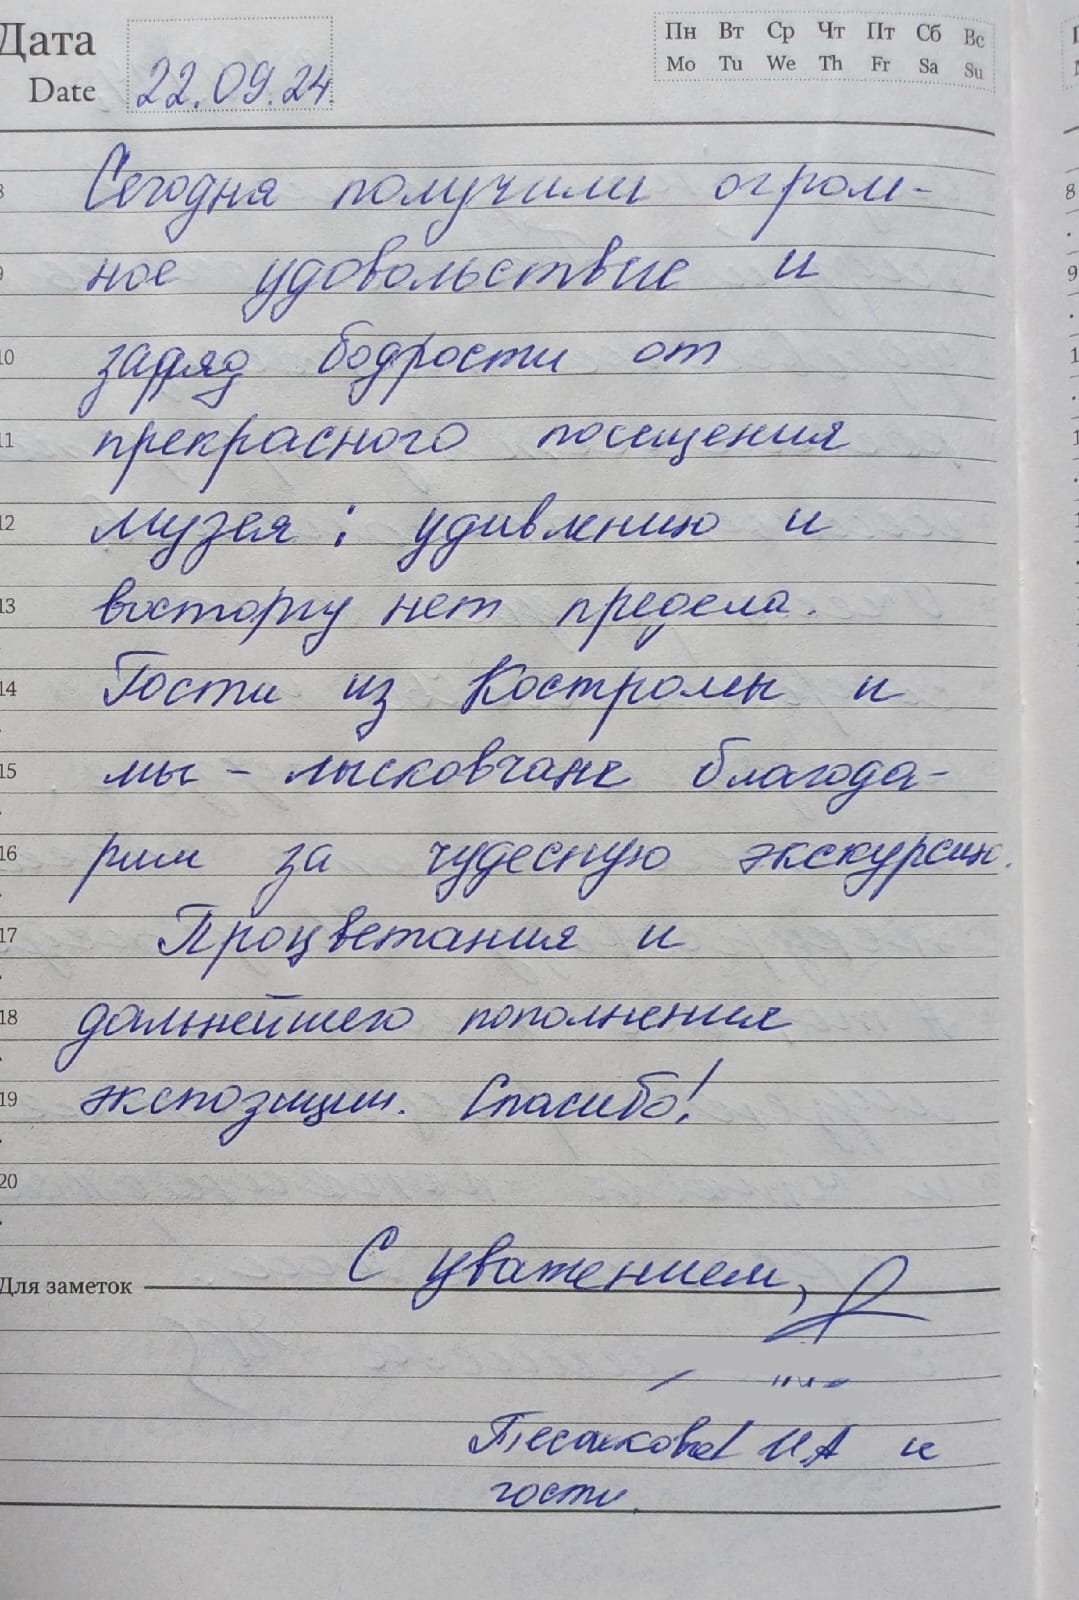 Дата
Пн Вт Ср Чт Пт Сб Вс
Date 22.09.24.
Mo Tu We Th Fr Sa Su
Сегодня получили огром-
ное удовольствие и
заряд бодрости от
прекрасного посещения
музея; удивлению и
восторгу нет предела.
Гости из Костромы и
мы - лысковчане благода-
рим за чудесную экскурсию.
Процветания и
дальнейшего пополнения
экспозиции. Спасибо!
С уважением,
Для заметок
ИА и
гости.
8
9
10
11
12
13
14
15
16
17
18
19
20